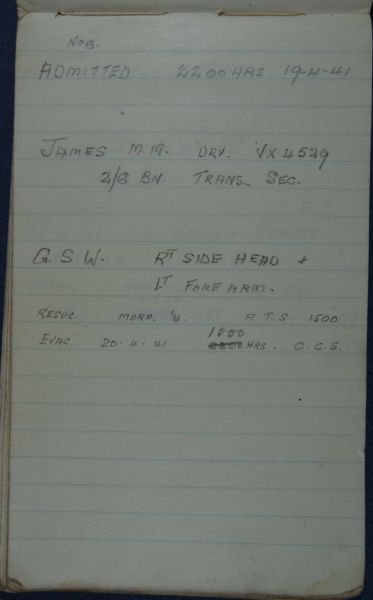 NOB.
ADMITTED. 2200 HRS 19-4-41
JAMES M M. DRV. VX4529
2/6 BN TRANS. SEC.
G. S. W. RT SIDE HEAD &
LT FORE ARM.
RESUC. MORP. 1/4. A.T.S. 1500
1800
EVAC. 20-4-41 2200 HRS. C.C.S.